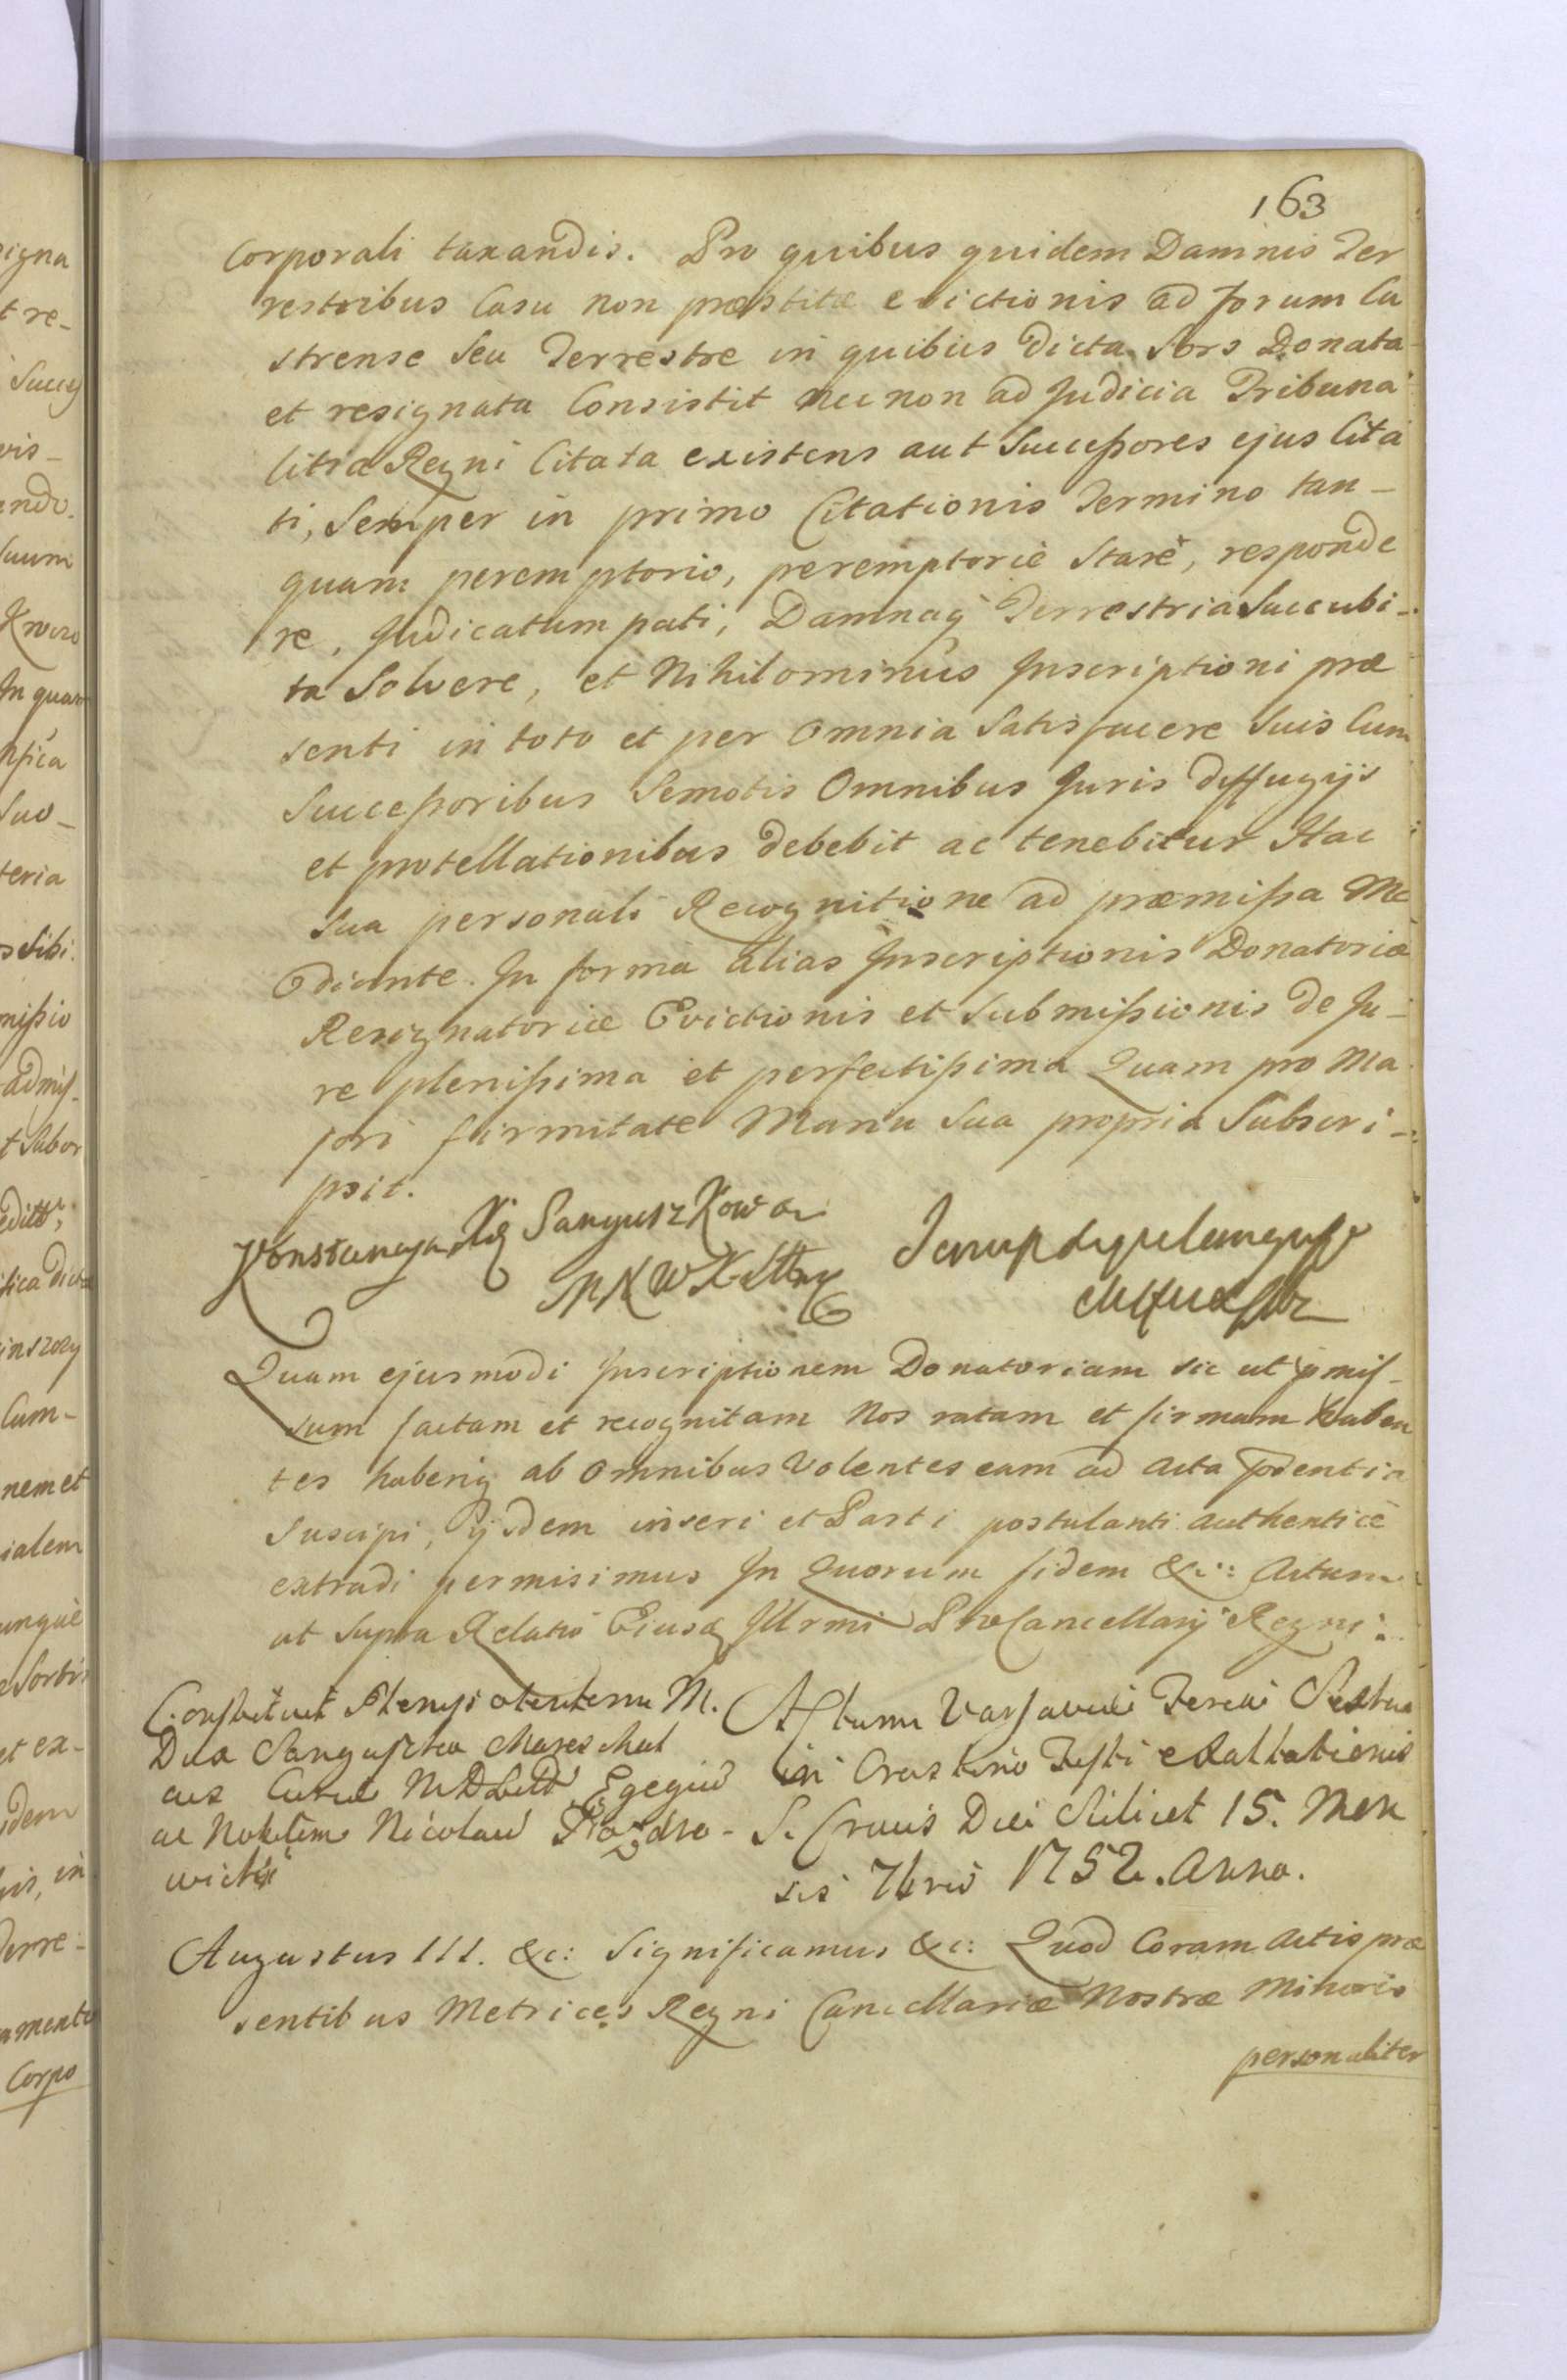 163
Corporali taxandis. Pro quibus quidem Damnis Ter
restribus Casu non præstitæ evictionis ad forum Ca
strense Seu Terrestre in quibus dicta Sors Donata
et resignata Consistit nec non ad Judicia Tribuna
litia Regni Citata existens aut Successores ejus Cita
ti, Semper in primo Citationis Termino tan-
quam peremptorio, peremptorie Stare, responde
re, Judicatum pati, Damnaq Terrestria Succubi-
ta Solvere, et Nihilominus Inscriptioni præ
senti in toto et per Omnia Satisfacere Suis Cum
Successoribus Semotis Omnibus Juris diffugijs
et protellationibus debebit ac tenebitur Hac
Sua personali Recognitione ad præmissa Me
diante. In forma alias Inscriptionis Donatoriæ
Resignatoriæ Evictionis et Submissionis de Ju-
re plenissima et perfectissima Quam pro Ma
jori firmitate Manu Sua propria Subscri-
psit.
Konstancya Xię Sanguszkowa
M N W X Litt
Quam ejusmodi Inscriptionem Donatoriam sic ut pmis-
sum factam et recognitam Nos ratam et firmam haben
tes haberiq ab Omnibus Volentes eam ad Acta pdentia
Suscipi, ijsdem inseri et Parti postulanti authentice
extradi permisimus In Quorum fidem &c: Actum
ut Supra Relatio Ejusd Illrmi ProCancellarij Regni:
Constituit Plenipotentem M.
Dux Sanguszko Mareschal
cus Curiæ MDLitt Egegiu
ac Nobilem Nicolau
wicz
Actum Varsaviæ Feria Sexta
in Crastino Festi exaltationis
S. Crucis Die Scilicet 15. Men
sis 7bris 1752. Anno.
Augustus III. &c: Significamus &c: Quod Coram Actis præ
sentibus Metrices Regni Cancellariæ Nostræ Minoris
personaliter